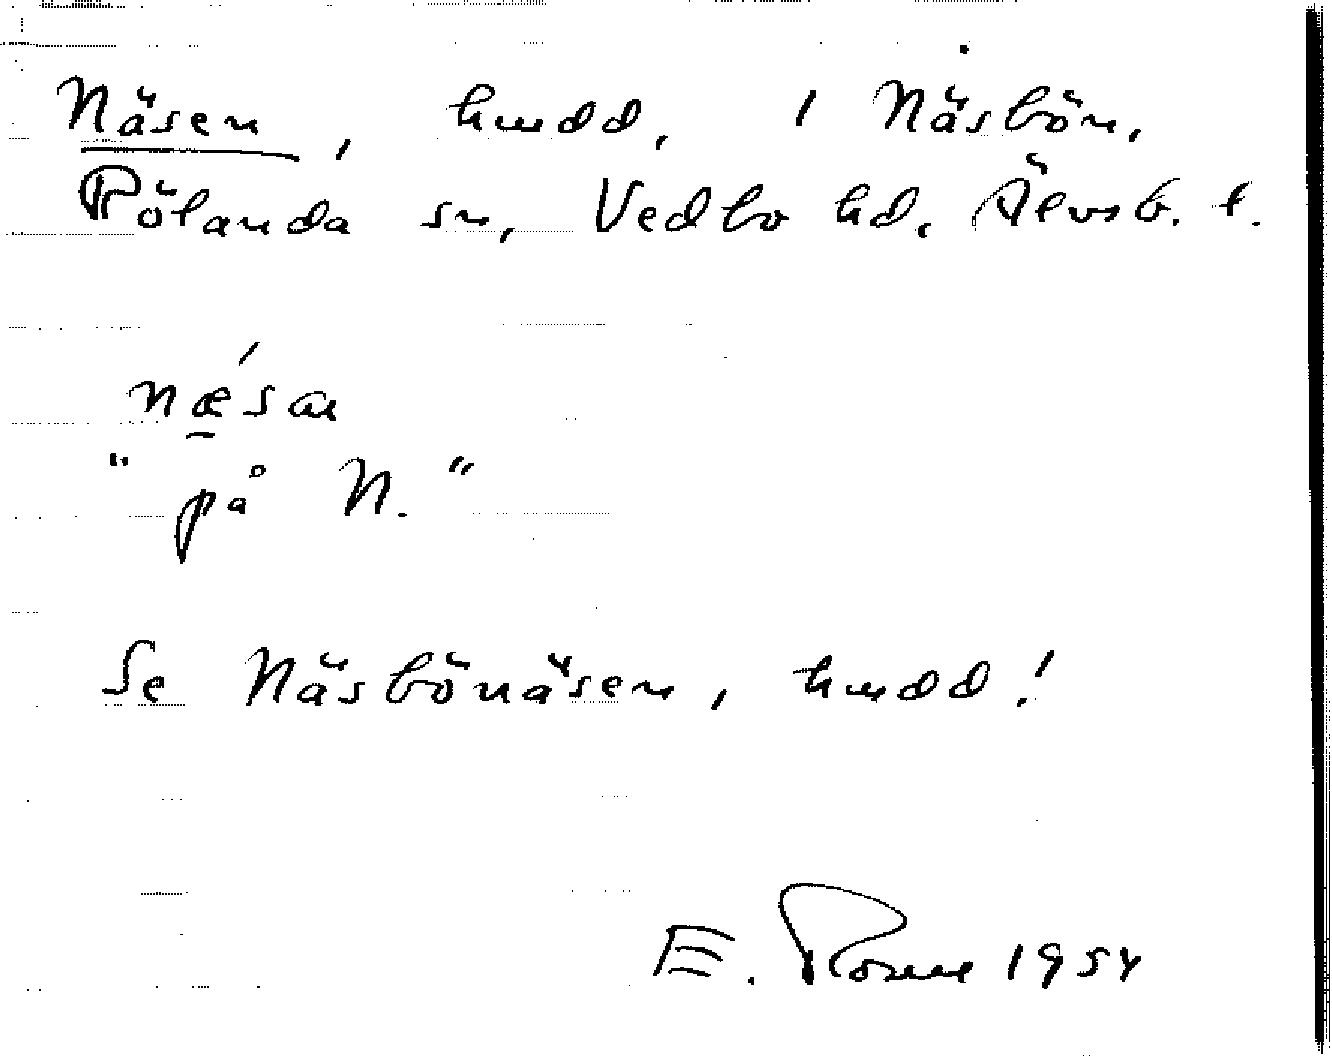 Näsen, hmdd, i Näsbön,
Rölanda sn, Vedbo hd. Älvsb. l.
næ̱´san
"på N."
Se Näsbönäsen, hmdd!
E. 1954